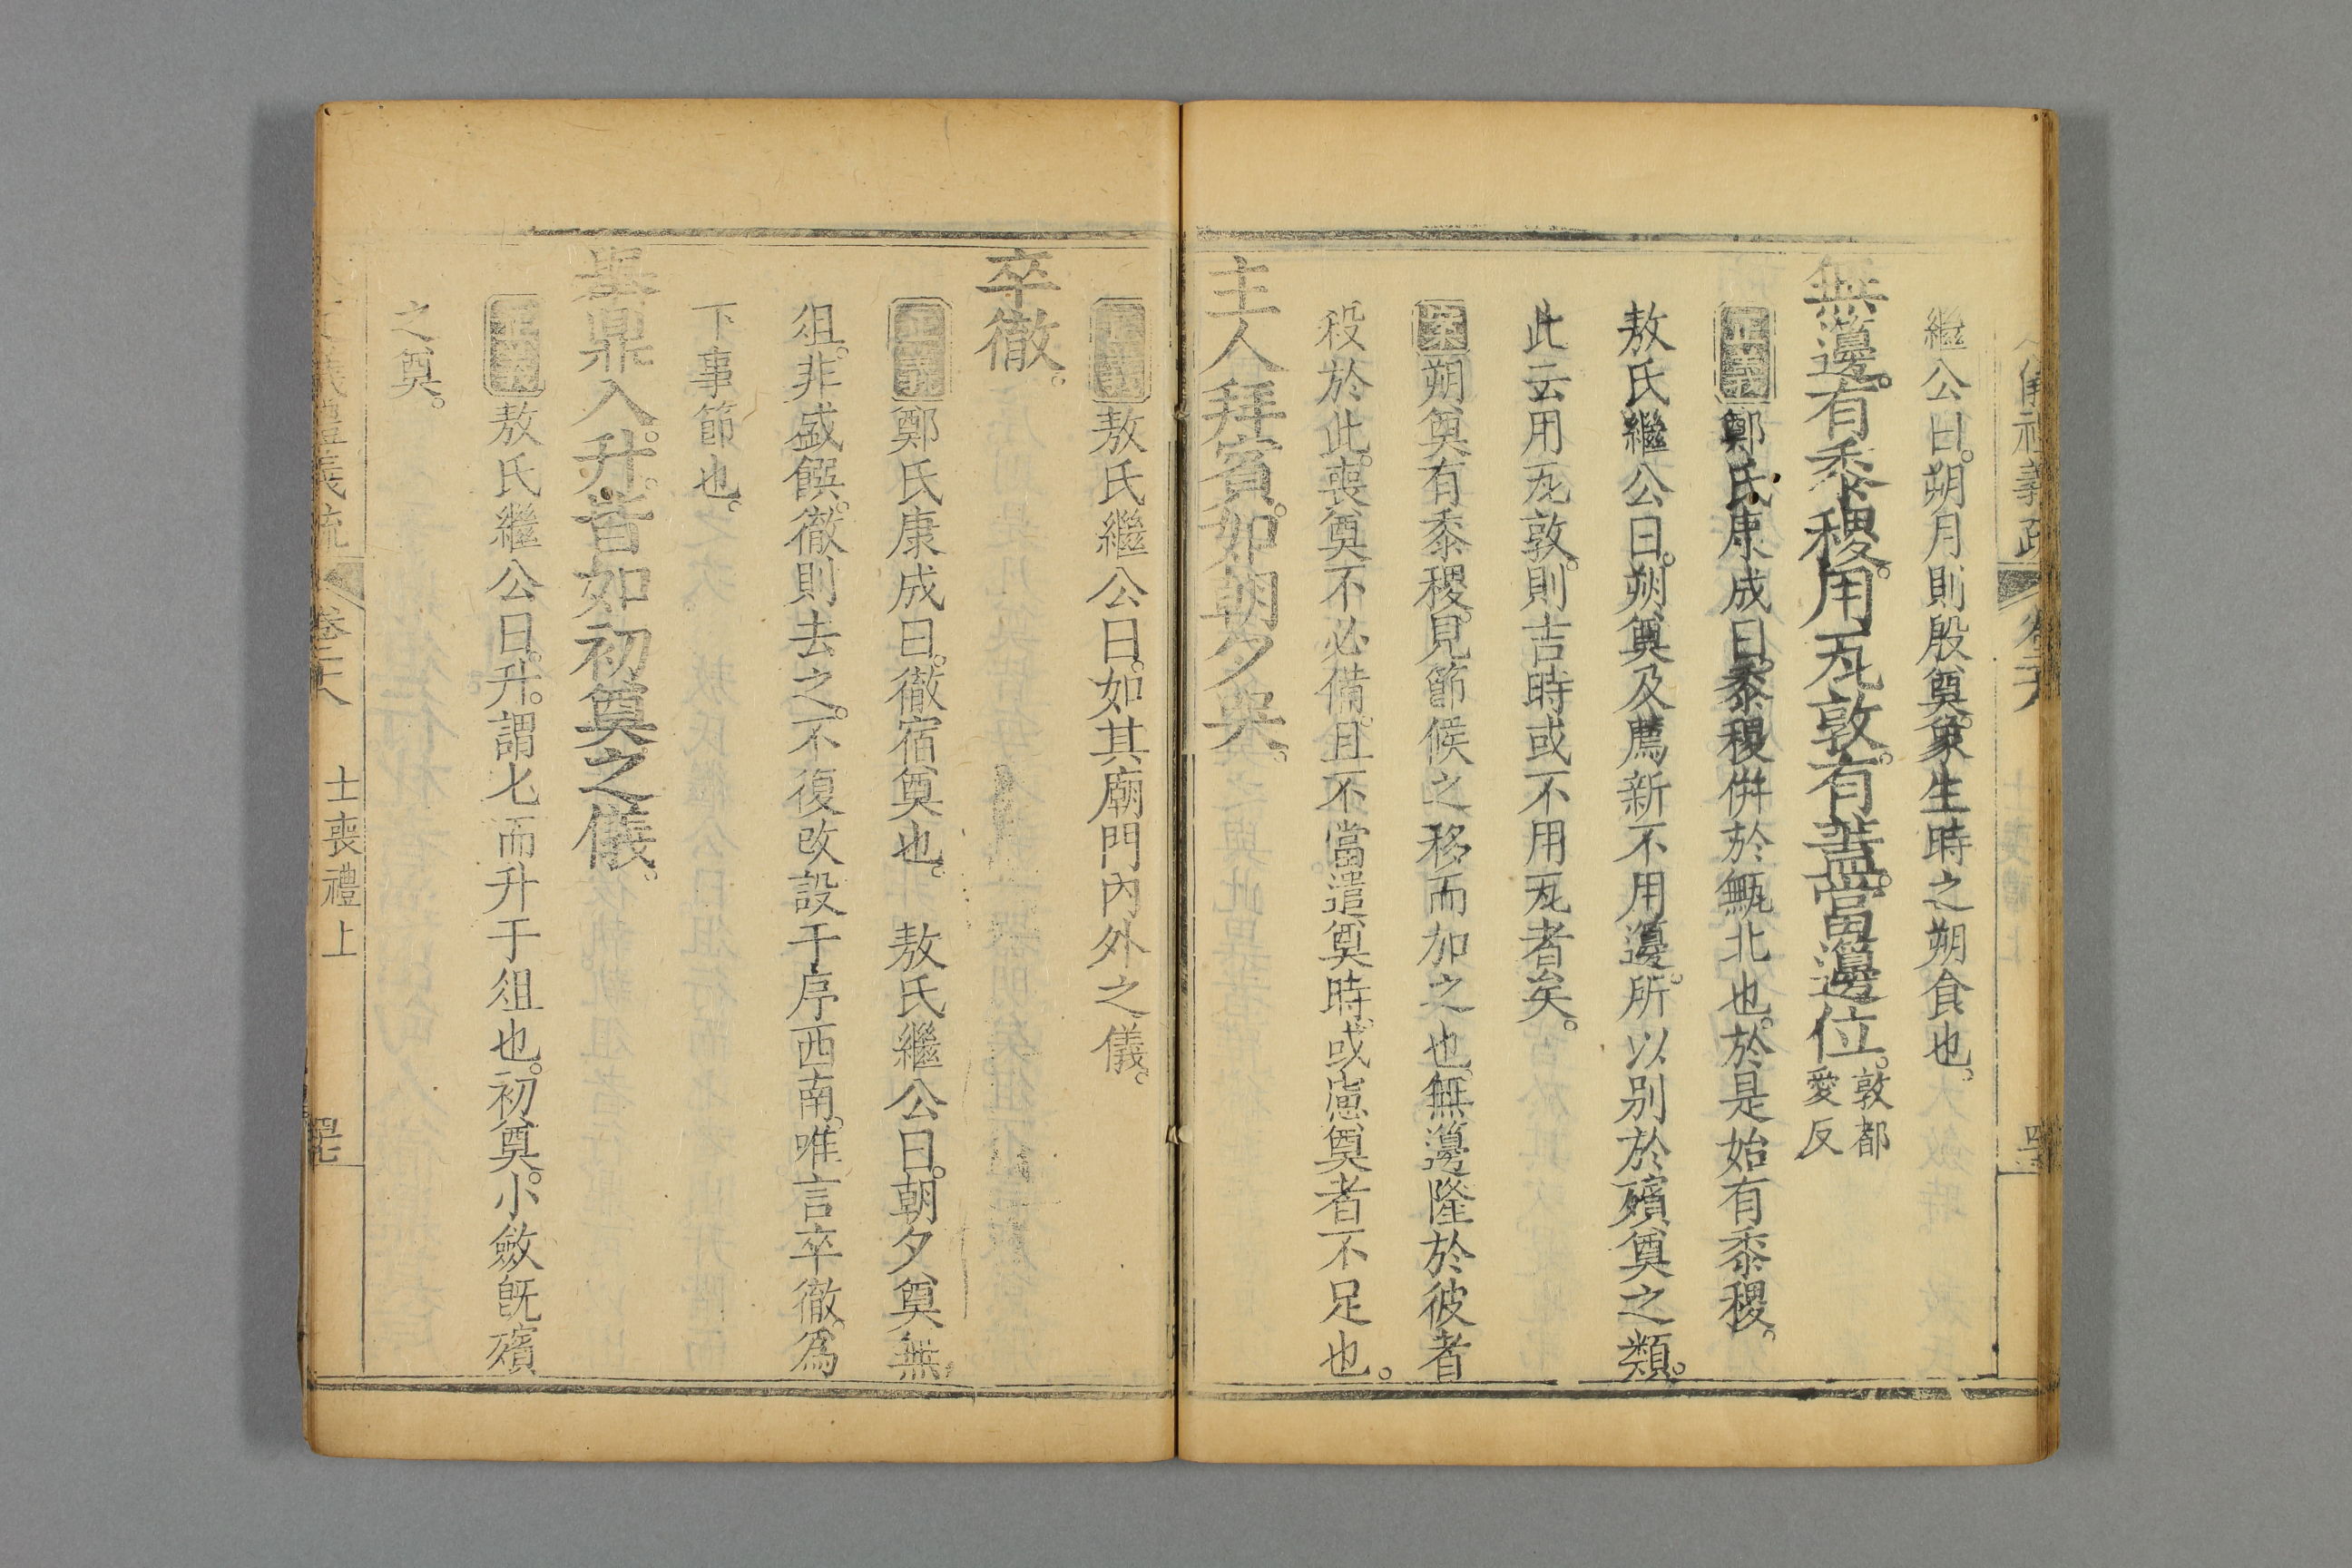 儀禮義疏 卷二十八
繼公曰。朔月則殷奠。象生時之朔食也。
無籩。有黍稷。用瓦敦。有蓋。當籩位。敦都愛反
正義鄭氏康成曰。黍稷併於甒北也。於是始有黍稷。
敖氏繼公曰。朔奠及薦新不用籩。所以别於殯奠之類。
此云用瓦敦。則吉時或不用瓦者矣。
案朔奠有黍稷。見節候之移而加之也。無籩。隆於彼者
殺於此。喪奠不必備。且不當遣奠時。或慮奠者不足也。
主人拜賓。如朝夕哭。
正義敖氏繼公曰。如其廟門內外之儀。
卒徹。
正義鄭氏康成曰。徹宿奠也。 敖氏繼公曰。朝夕奠無
俎。非盛饌。徹則去之。不復改設于序西南。唯言卒徹。為
下事節也。
舉鼎入升。皆如初奠之儀。
正義敖氏繼公曰。升。謂匕而升于俎也。初奠。小斂旣殯
之奠。
儀禮義疏 卷二十八 士喪禮上